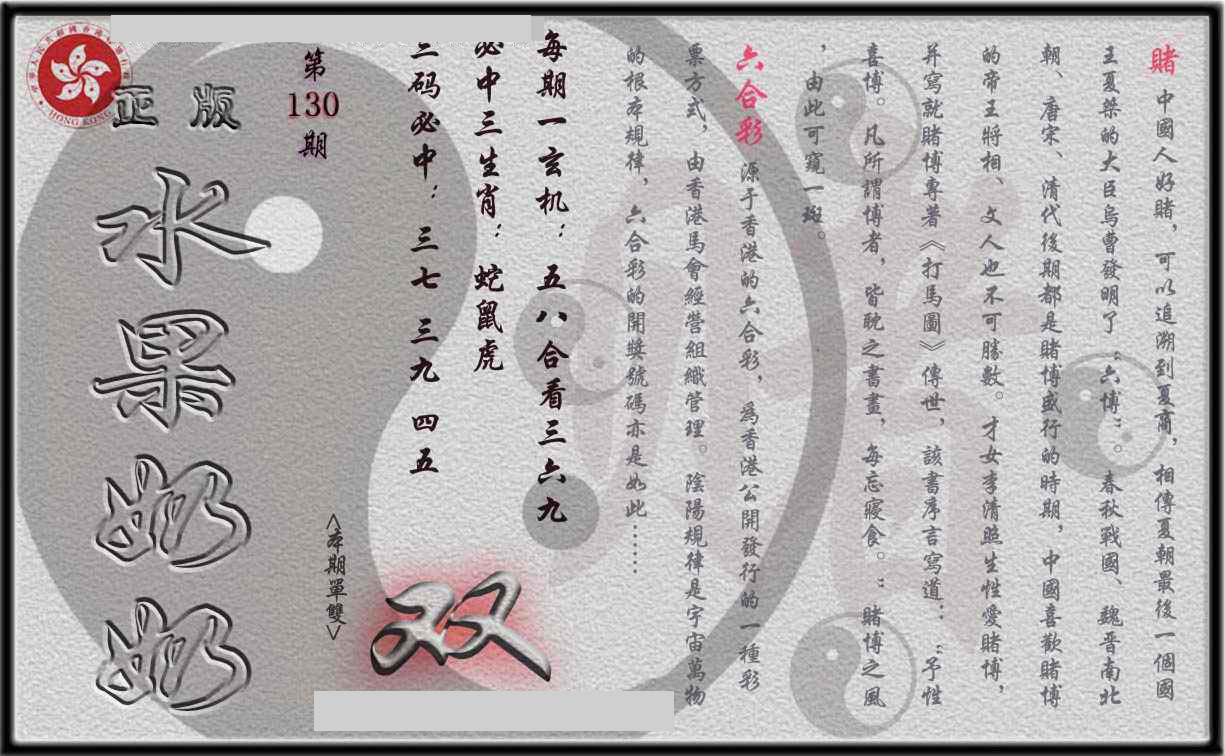 賭 中國人好賭，可以追溯到夏商，相傳夏朝最後一個國
王夏桀的大臣烏曹發明了“六博”。春秋戰國、魏晋南北
朝、唐宋、清代後期都是賭博盛行的時期，中國喜歡賭博
的帝王將相、文人也不可勝數。才女李清照生性愛賭博，
并寫就賭博專著《打馬圖》傳世，該書序言寫道：“予性
喜博。凡所謂博者，皆耽之書畫，每忘寢食。”賭博之風
，由此可窺一斑。
六合彩 源于香港的六合彩，為香港公開發行的一種彩
票方式，由香港馬會經營組織管理。陰陽規律是宇宙萬物
的根本規律，六合彩的開獎號碼亦是如此……
每期一玄机：五八合看三六九
必中三生肖：蛇鼠虎
三码必中：三七 三九 四五
第
130
期
<本期單雙>
双
正版
水果奶奶
HONG KONG